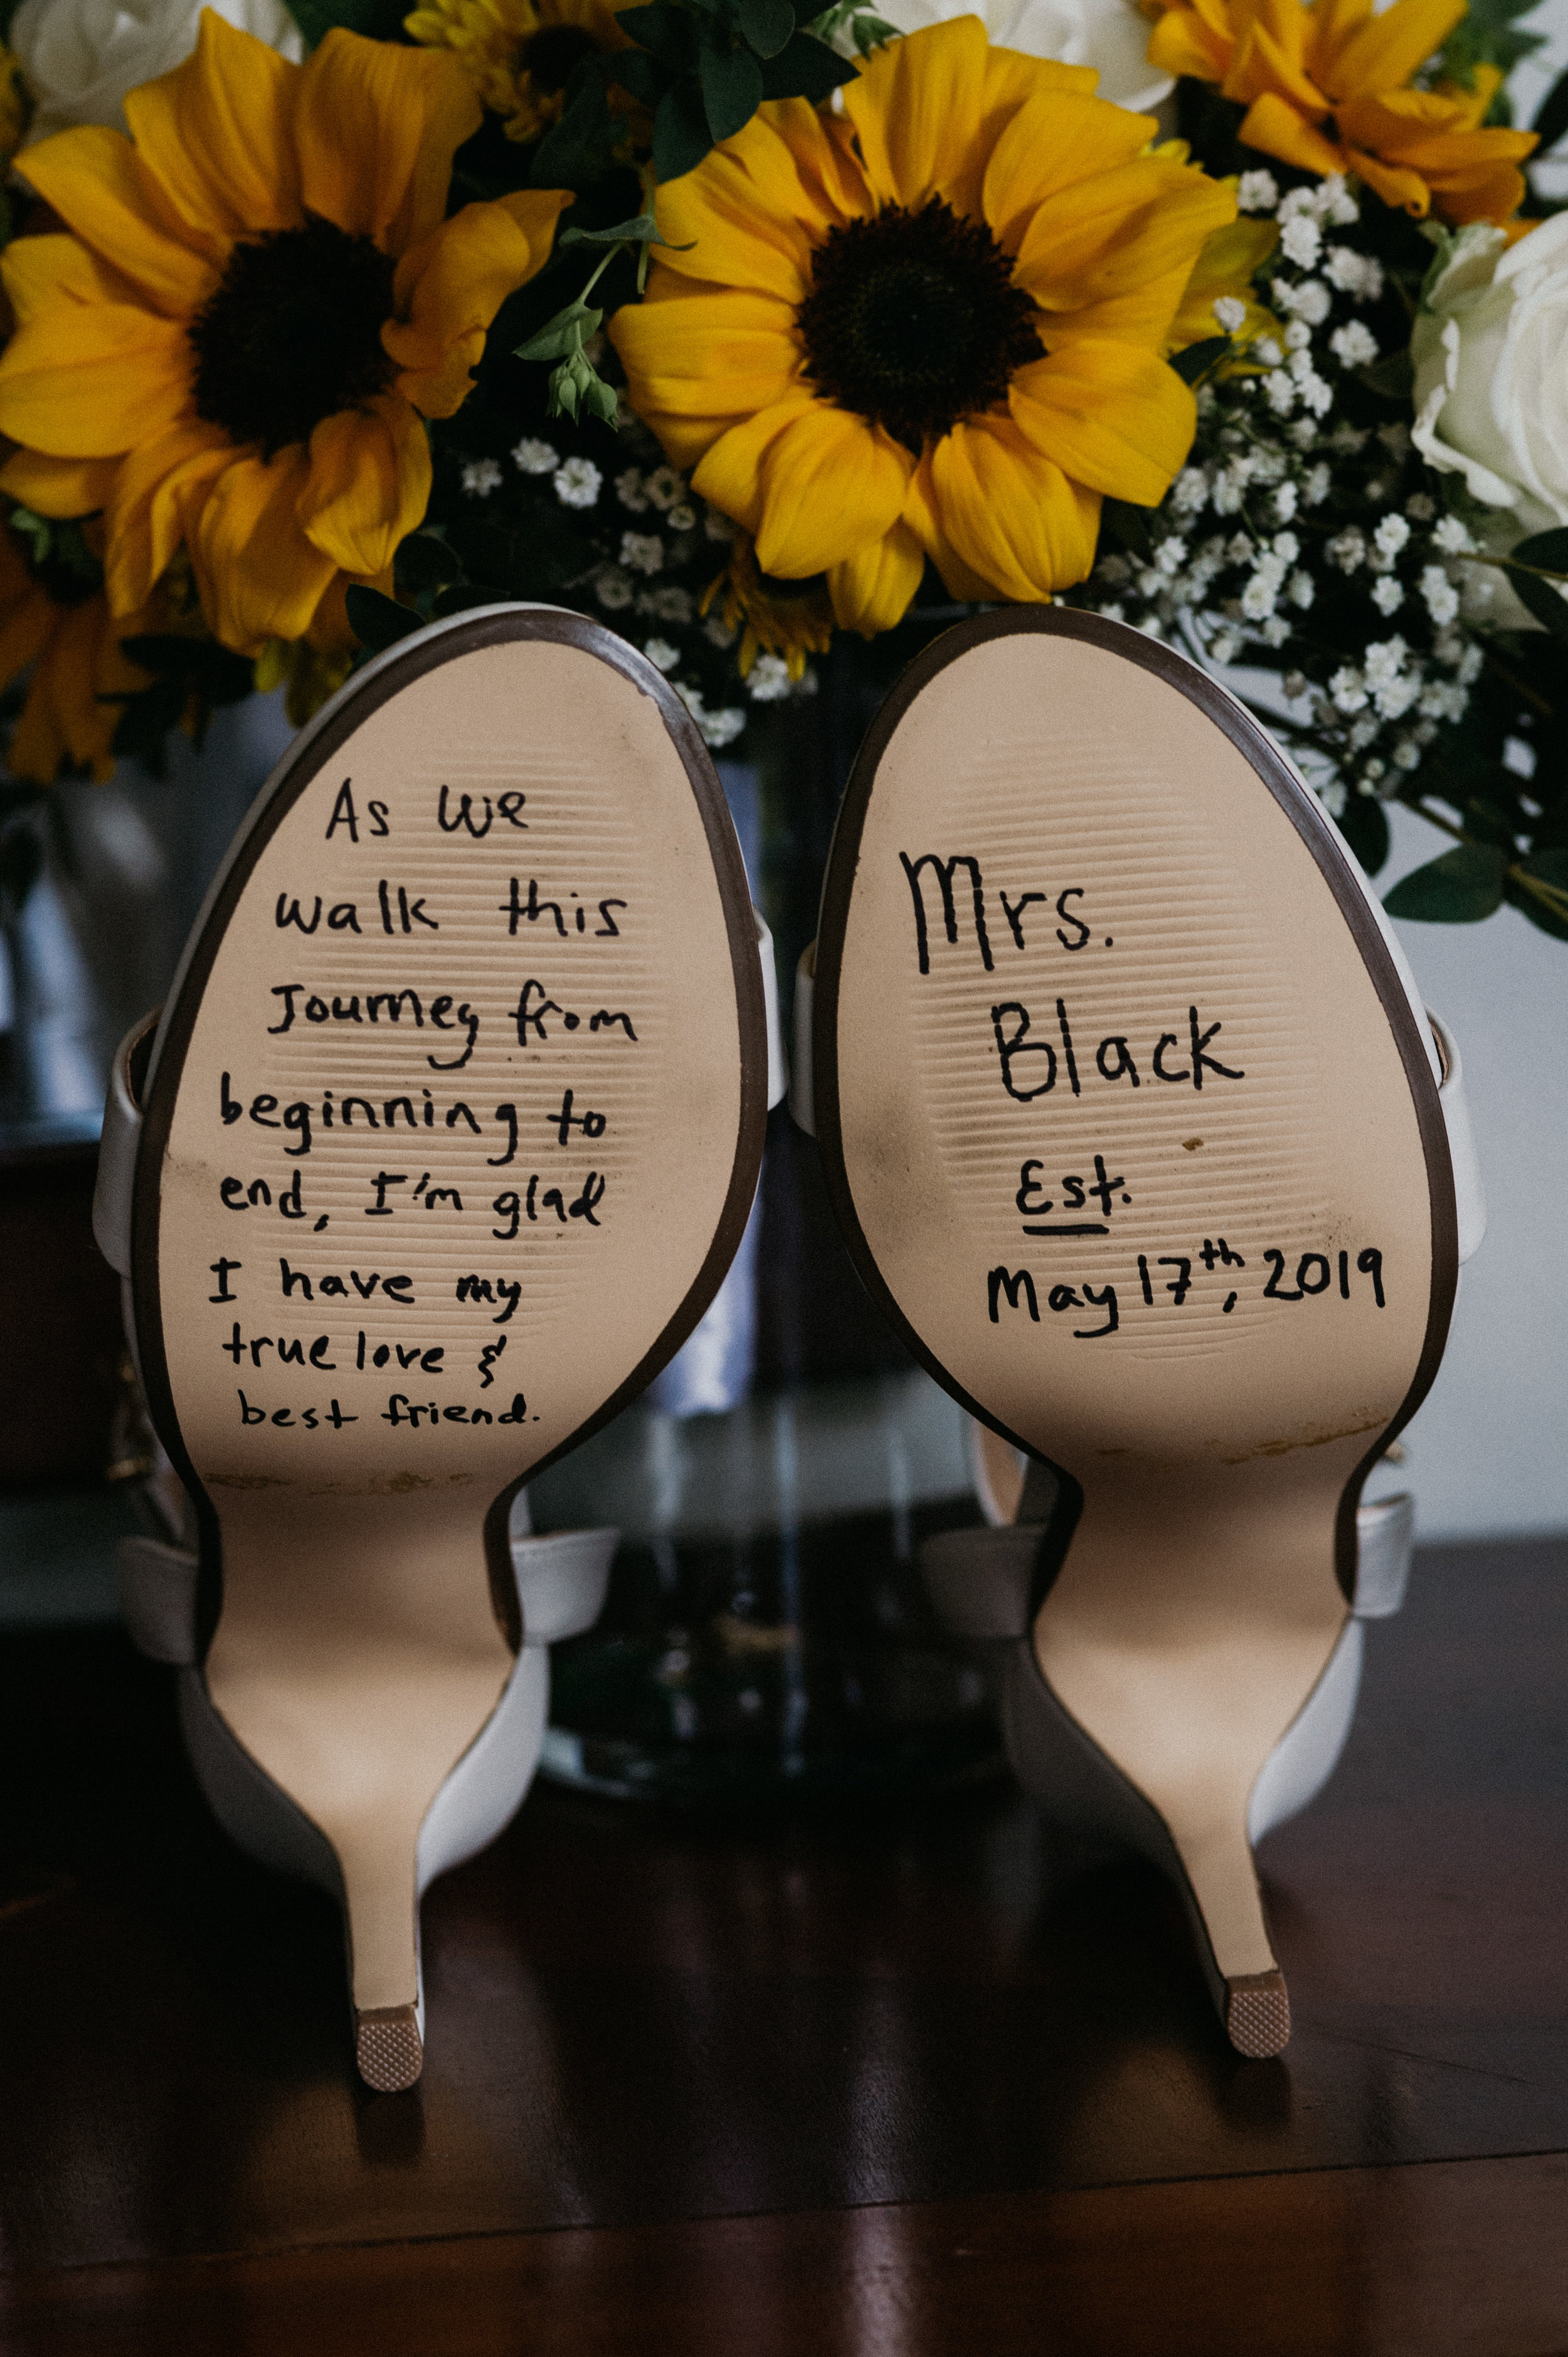 As we
walk this
Journey from
beginning to
end, I'm glad
I have my
true love &
best friend.
Mrs.
Black
Est.
May 17th, 2019